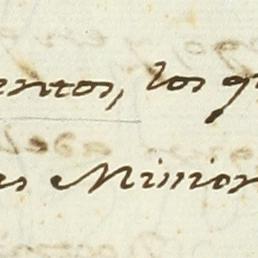 entos, los q
as Mission